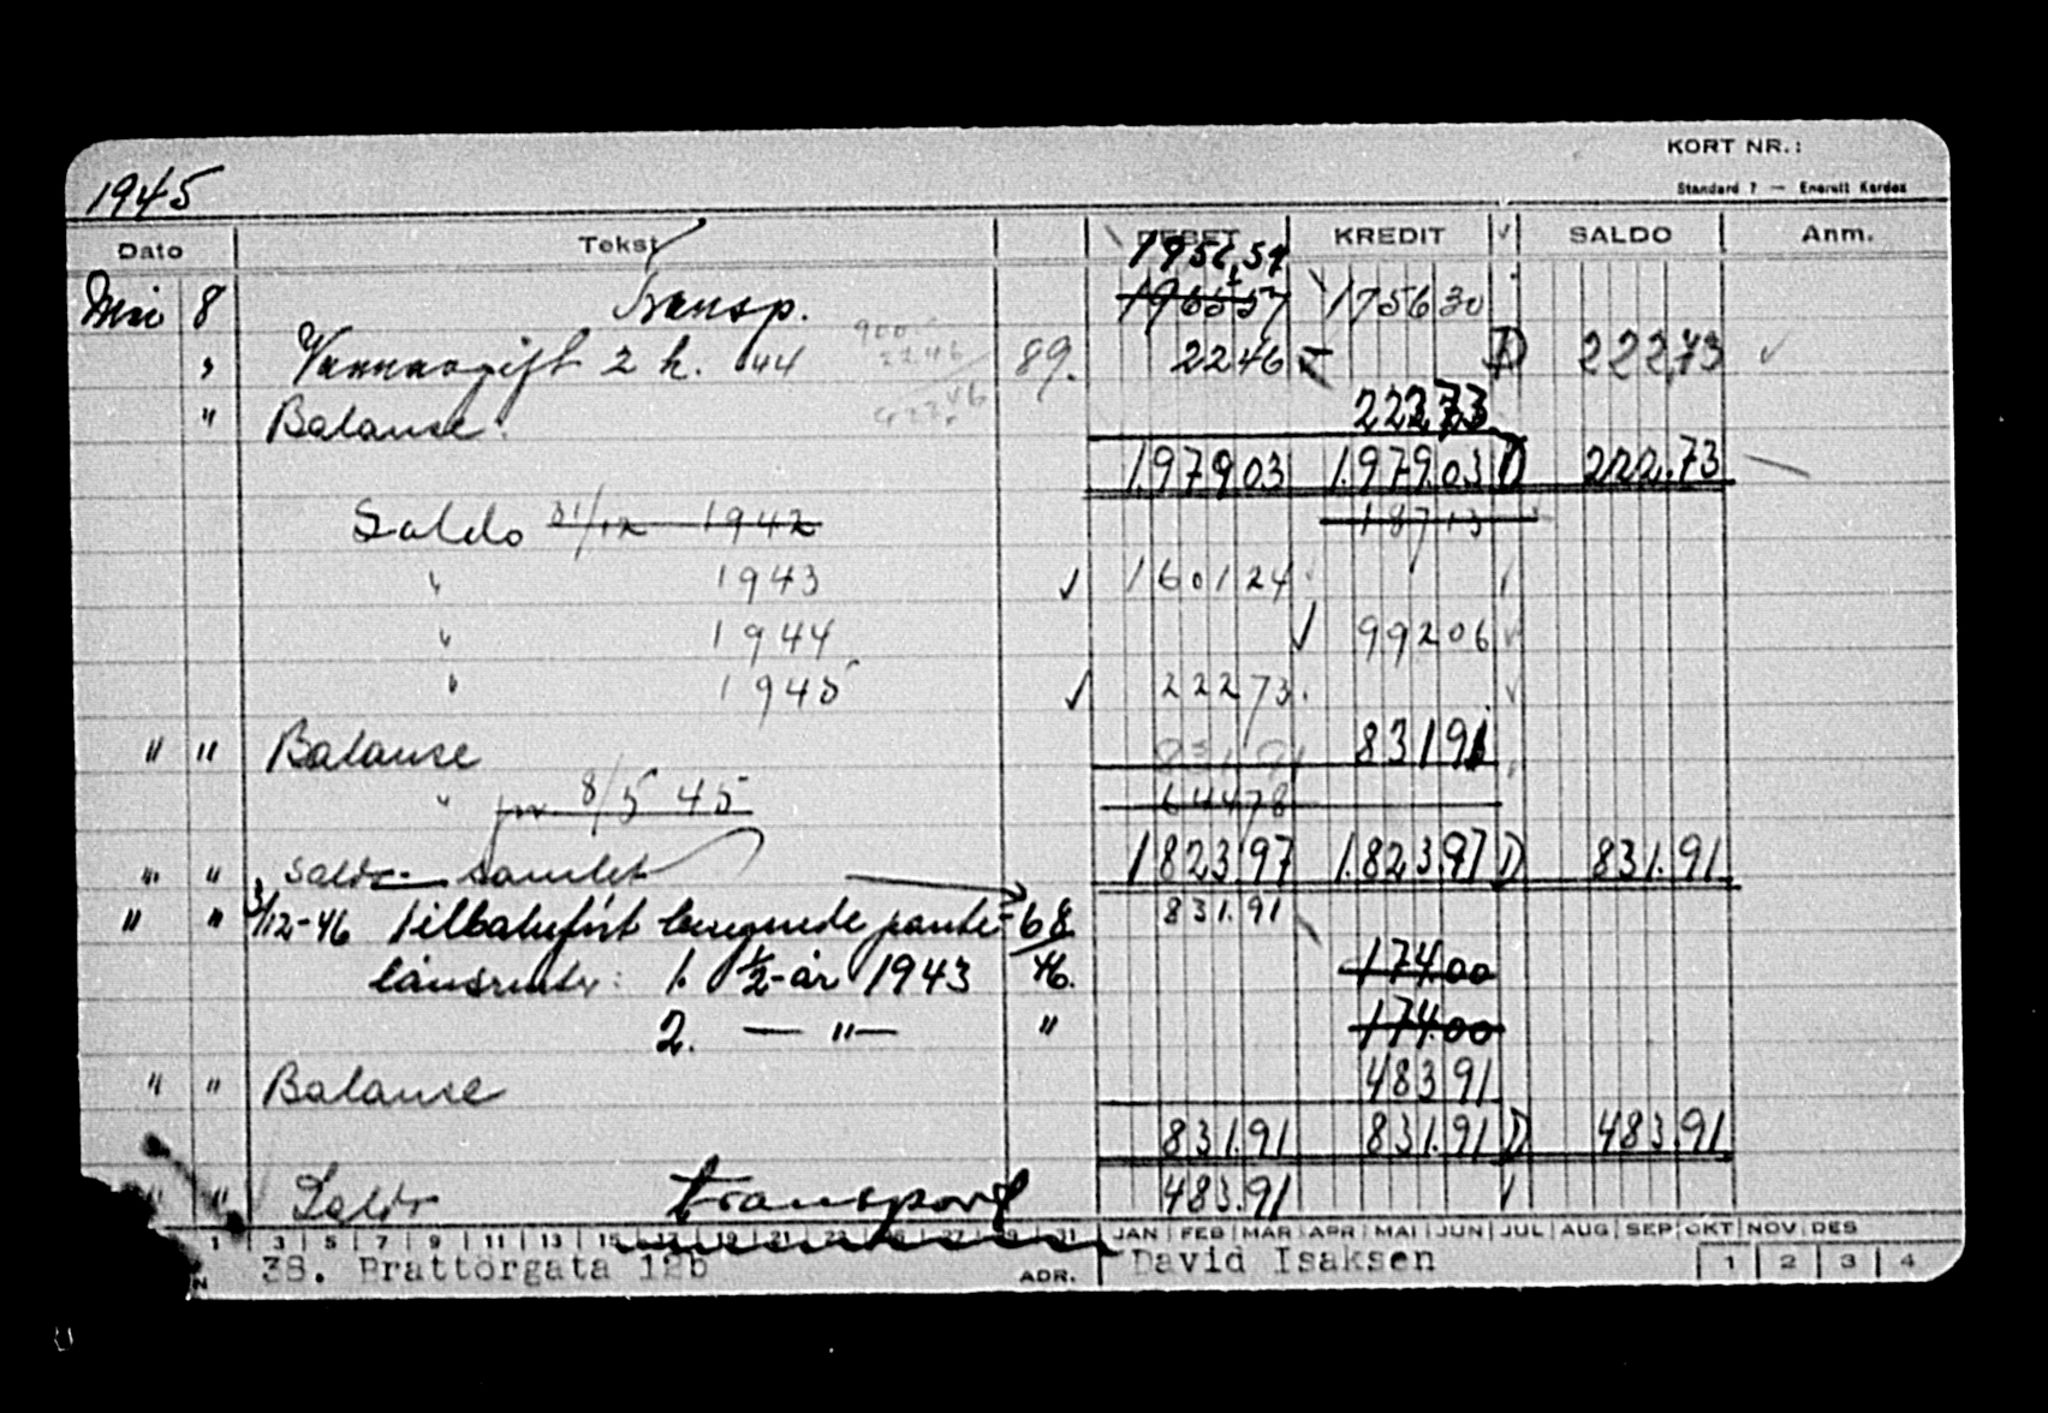 KORT NR.:
Standard 7 — Enerett Kardex
1945
Dato Tekst DEBET KREDIT √ SALDO Anm.
1956,57
Mai 8 Transp. 196557 175630
" Vannavgift 2 h. 44 89. 2246 D 222,73 √
900
2246
" Balanse. 222,73
1.979.03 1.979.03 D 222.73
Saldo 31/12 1942 18713
" 1943 √ 160124
" 1944 √ 99206 √
" 1945 √ 22273. √
" " Balanse 831,91 83191
" pr 8/5 45 64478
" " Saldo samlet 1823,97 1.823.97 D 831.91
" " 3/12-46 Tilbakeført beregnede pante- 68 831.91
lånsrenter: 1. 1/2-år 1943 46. 174.00
2. — " — " 174.00
" " Balanse 483,91
831.91 831.91 D 483.91
" " Saldo transport 483.91 √
1 3 5 7 9 11 13 15 17 19 21 23 25 27 29 31 JAN FEB MAR APR MAI JUN JUL AUG SEP OKT NOV DES
38. Brattörgata 12b ADR. David Isaksen 1 2 3 4